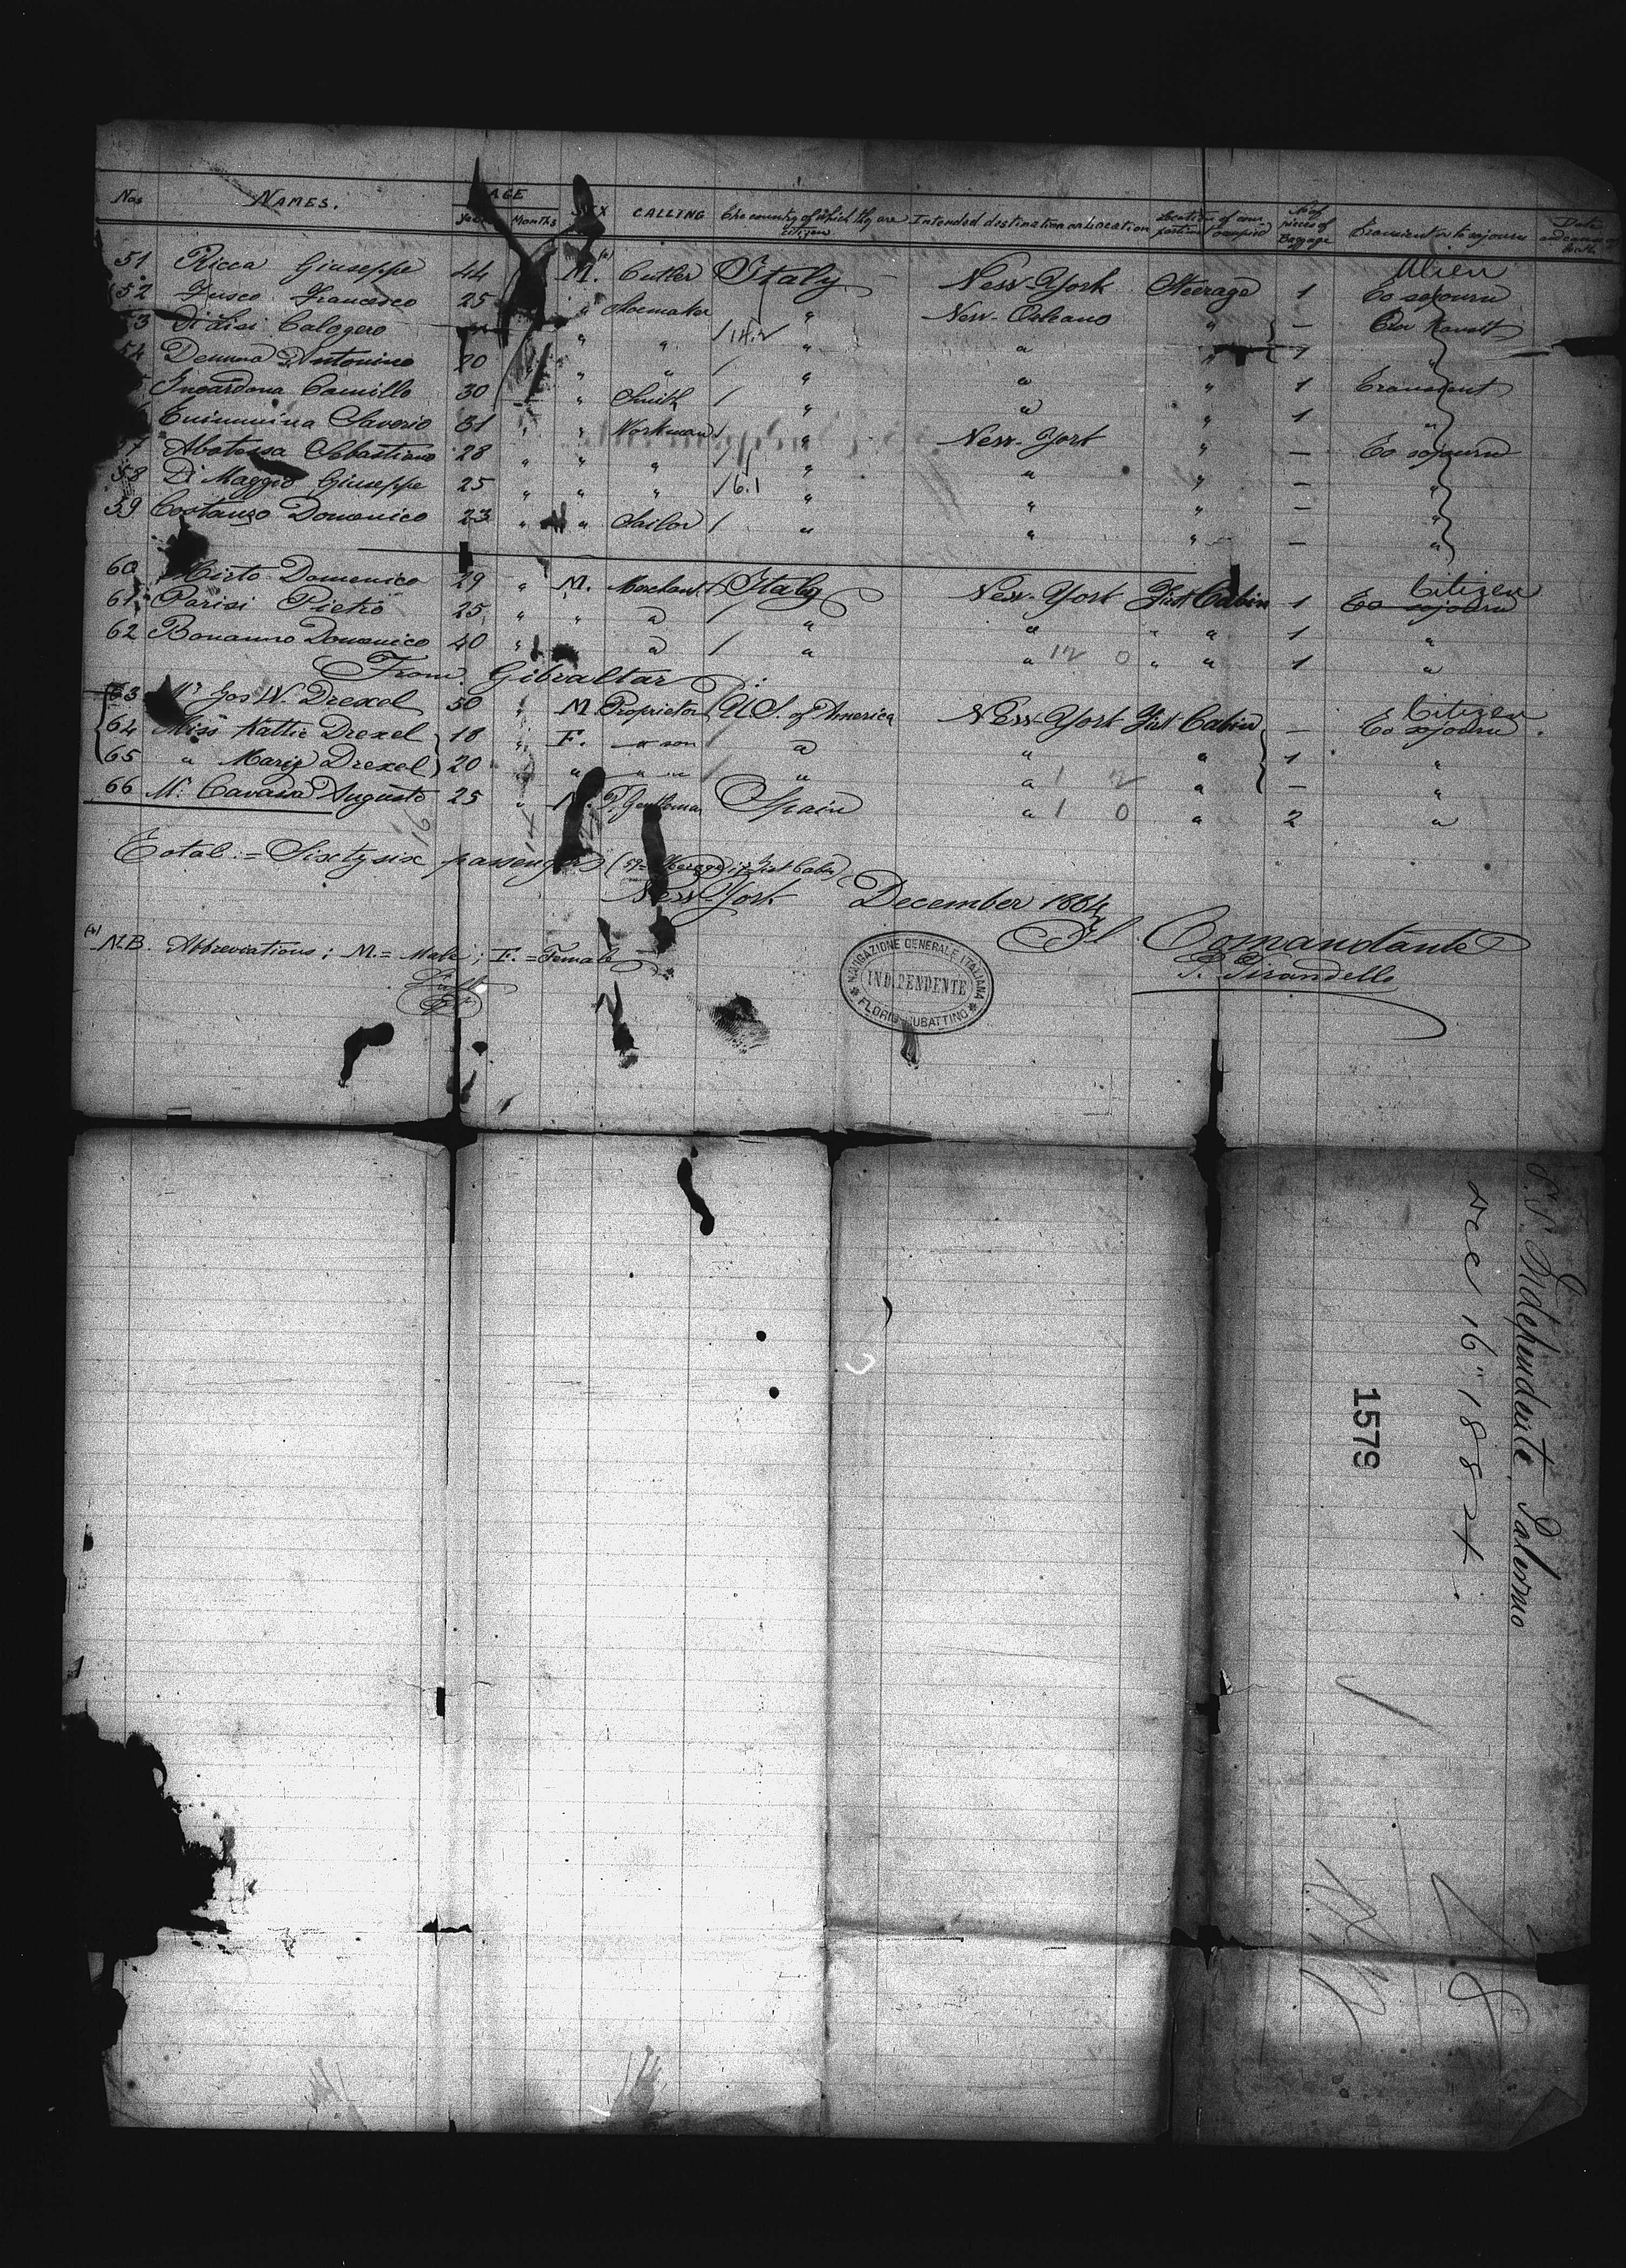 Nos NAMES. AGE Years Months SEX CALLING The country of which they are citizen Intended destination or location Location of compartment occupied No of pieces of Baggage Transient or to sojourn Date and cause of death
51 Ricca Giuseppe 44 M. (a) Cutler Italy New-York Steerage 1 Alien To sojourn
52 Fusco Francesco 25 " Shoemaker " New-Orleans " — For transit
53 Di Lisi Calogero " " " " " 1 "
54 Antonino 20 " " " " " 1 Transient
Ingardona Camillo 30 " Smith " " " 1 "
Saverio 31 " " Workman " New-York " — To sojourn
57 Abatossa Sebastiano 28 " " " " " " — "
58 Di Maggio Giuseppe 25 " " " 6.1 " " " — "
59 Costanzo Domenico 23 " " Sailor " " " — "
60 Mirto Domenico 29 " M. Merchant Italy New-York First Cabin 1 Citizen To sojourn
61 Parisi Pietro 25 " " " " " " " 1 "
62 Bonanno Domenico 40 " " " " 12 0 " " 1 "
From Gibraltar
63 Mr Jos W. Drexel 50 " M. Proprietor U.S. of America New-York First Cabin — Citizen To sojourn.
64 Miss Kattie Drexel 18 " F. " " " 1 "
65 " Marig Drexel 20 " " " " " — "
66 Mr. Cavassa Augusto 25 " M. Gentleman Spain " 1 0 " 2 "
Total := Sixtysix passengers (59= Steerage; 7= First Cabin)
New-York December 1884
Il Comandante
P. Pirandello
(a) N.B. Abbreviations; M.= Male; F.=Female
NAVIGAZIONE GENERALE ITALIANA
INDIPENDENTE
FLORIO RUBATTINO
S.S. Independente Palermo
Dec 16" 1884.
1579